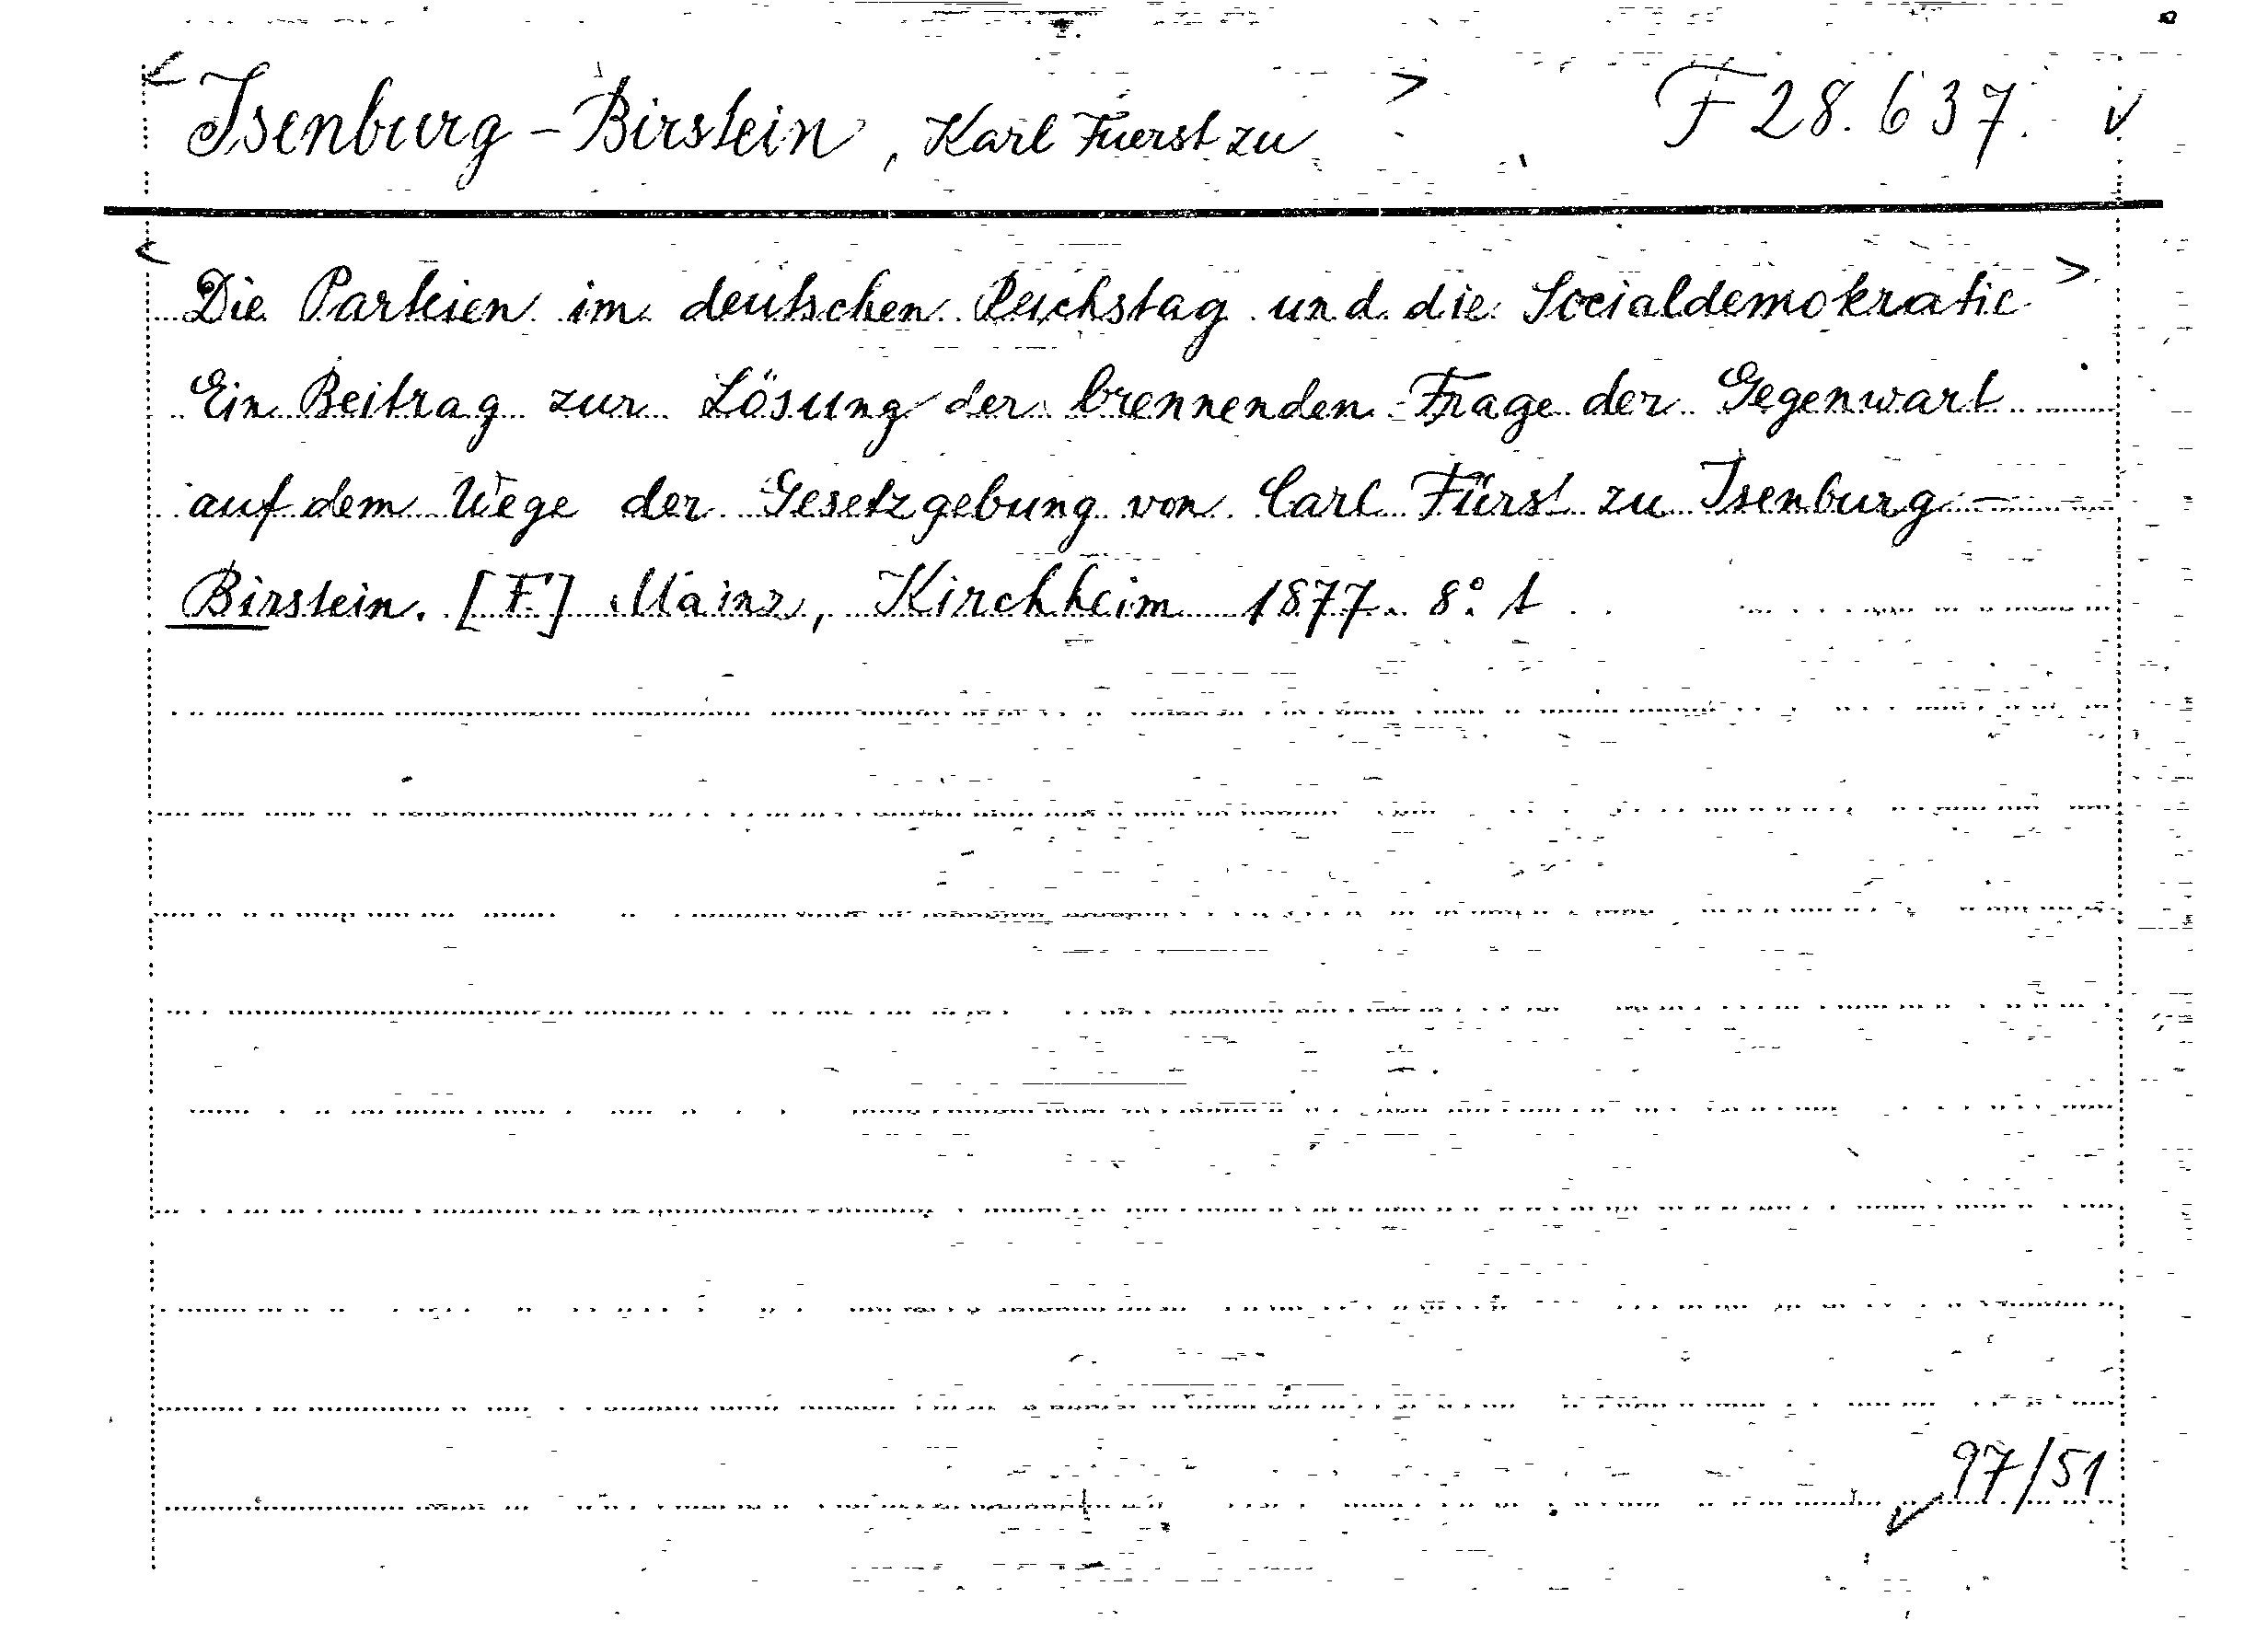 < Isenburg-Birstein, Karl Fuerst zu > F 28.637. v
< Die Parteien im deutschen Reichstag und die Socialdemokratie >.
Ein Beitrag zur Lösung der brennenden Frage der Gegenwart
auf dem Wege der Gesetzgebung von Carl Fürst zu Isenburg-
Birstein. [F.] Mainz, Kirchheim 1877. 8° 1
97/51